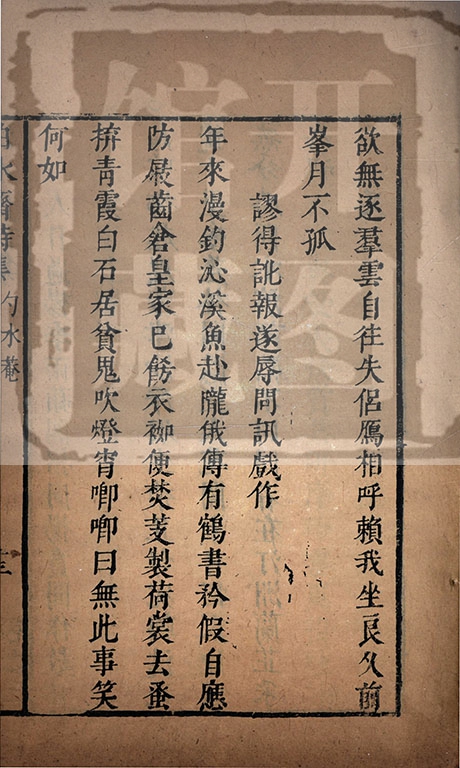 欲無逐羣雲自徃失侶鴈相呼賴我坐良久前
峯月不孤
謬得訛報遂辱問訊戲作
年來漫釣沁溪魚赴隴俄傳有鶴書矜假自應
防嚴齒皇家巳餝衣袽便焚芰製荷裳去蚤
拚青霞白石居貧鬼吹燈宵唧唧曰無此事笑
何如
白水齋詩集 勺水菴